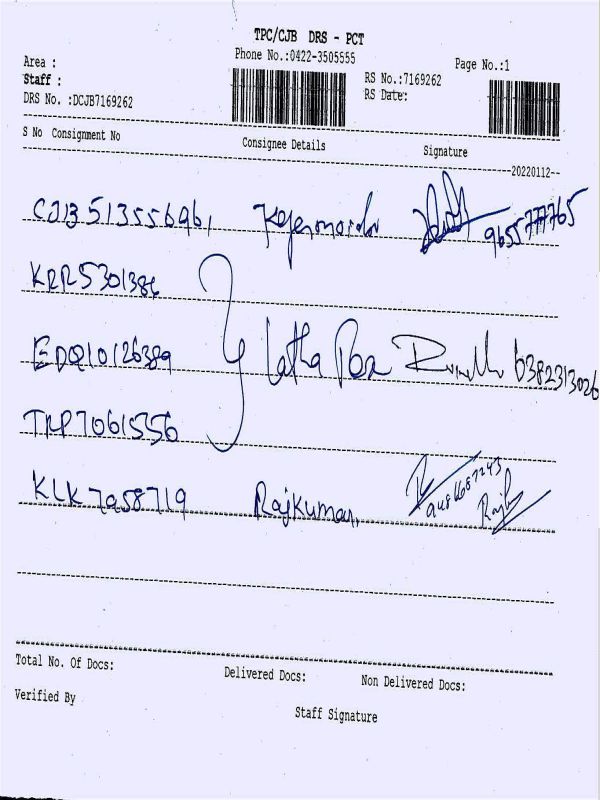 TPC/CJB DRS - PCT
Phone No.:0422-3505555
Area :
Page No.:1
Staff :
RS No.:7169262
DRS No. :DCJB7169262
RS Date:
S No Consignment No Consignee Details Signature
--20220112--
CJB513556961 9655777765
KRR5301386
EDQ10126389 Latha 6382313026
TRP7061556
KLK7958719 Rajkumar 9486687243
Total No. Of Docs: Delivered Docs: Non Delivered Docs:
Verified By
Staff Signature